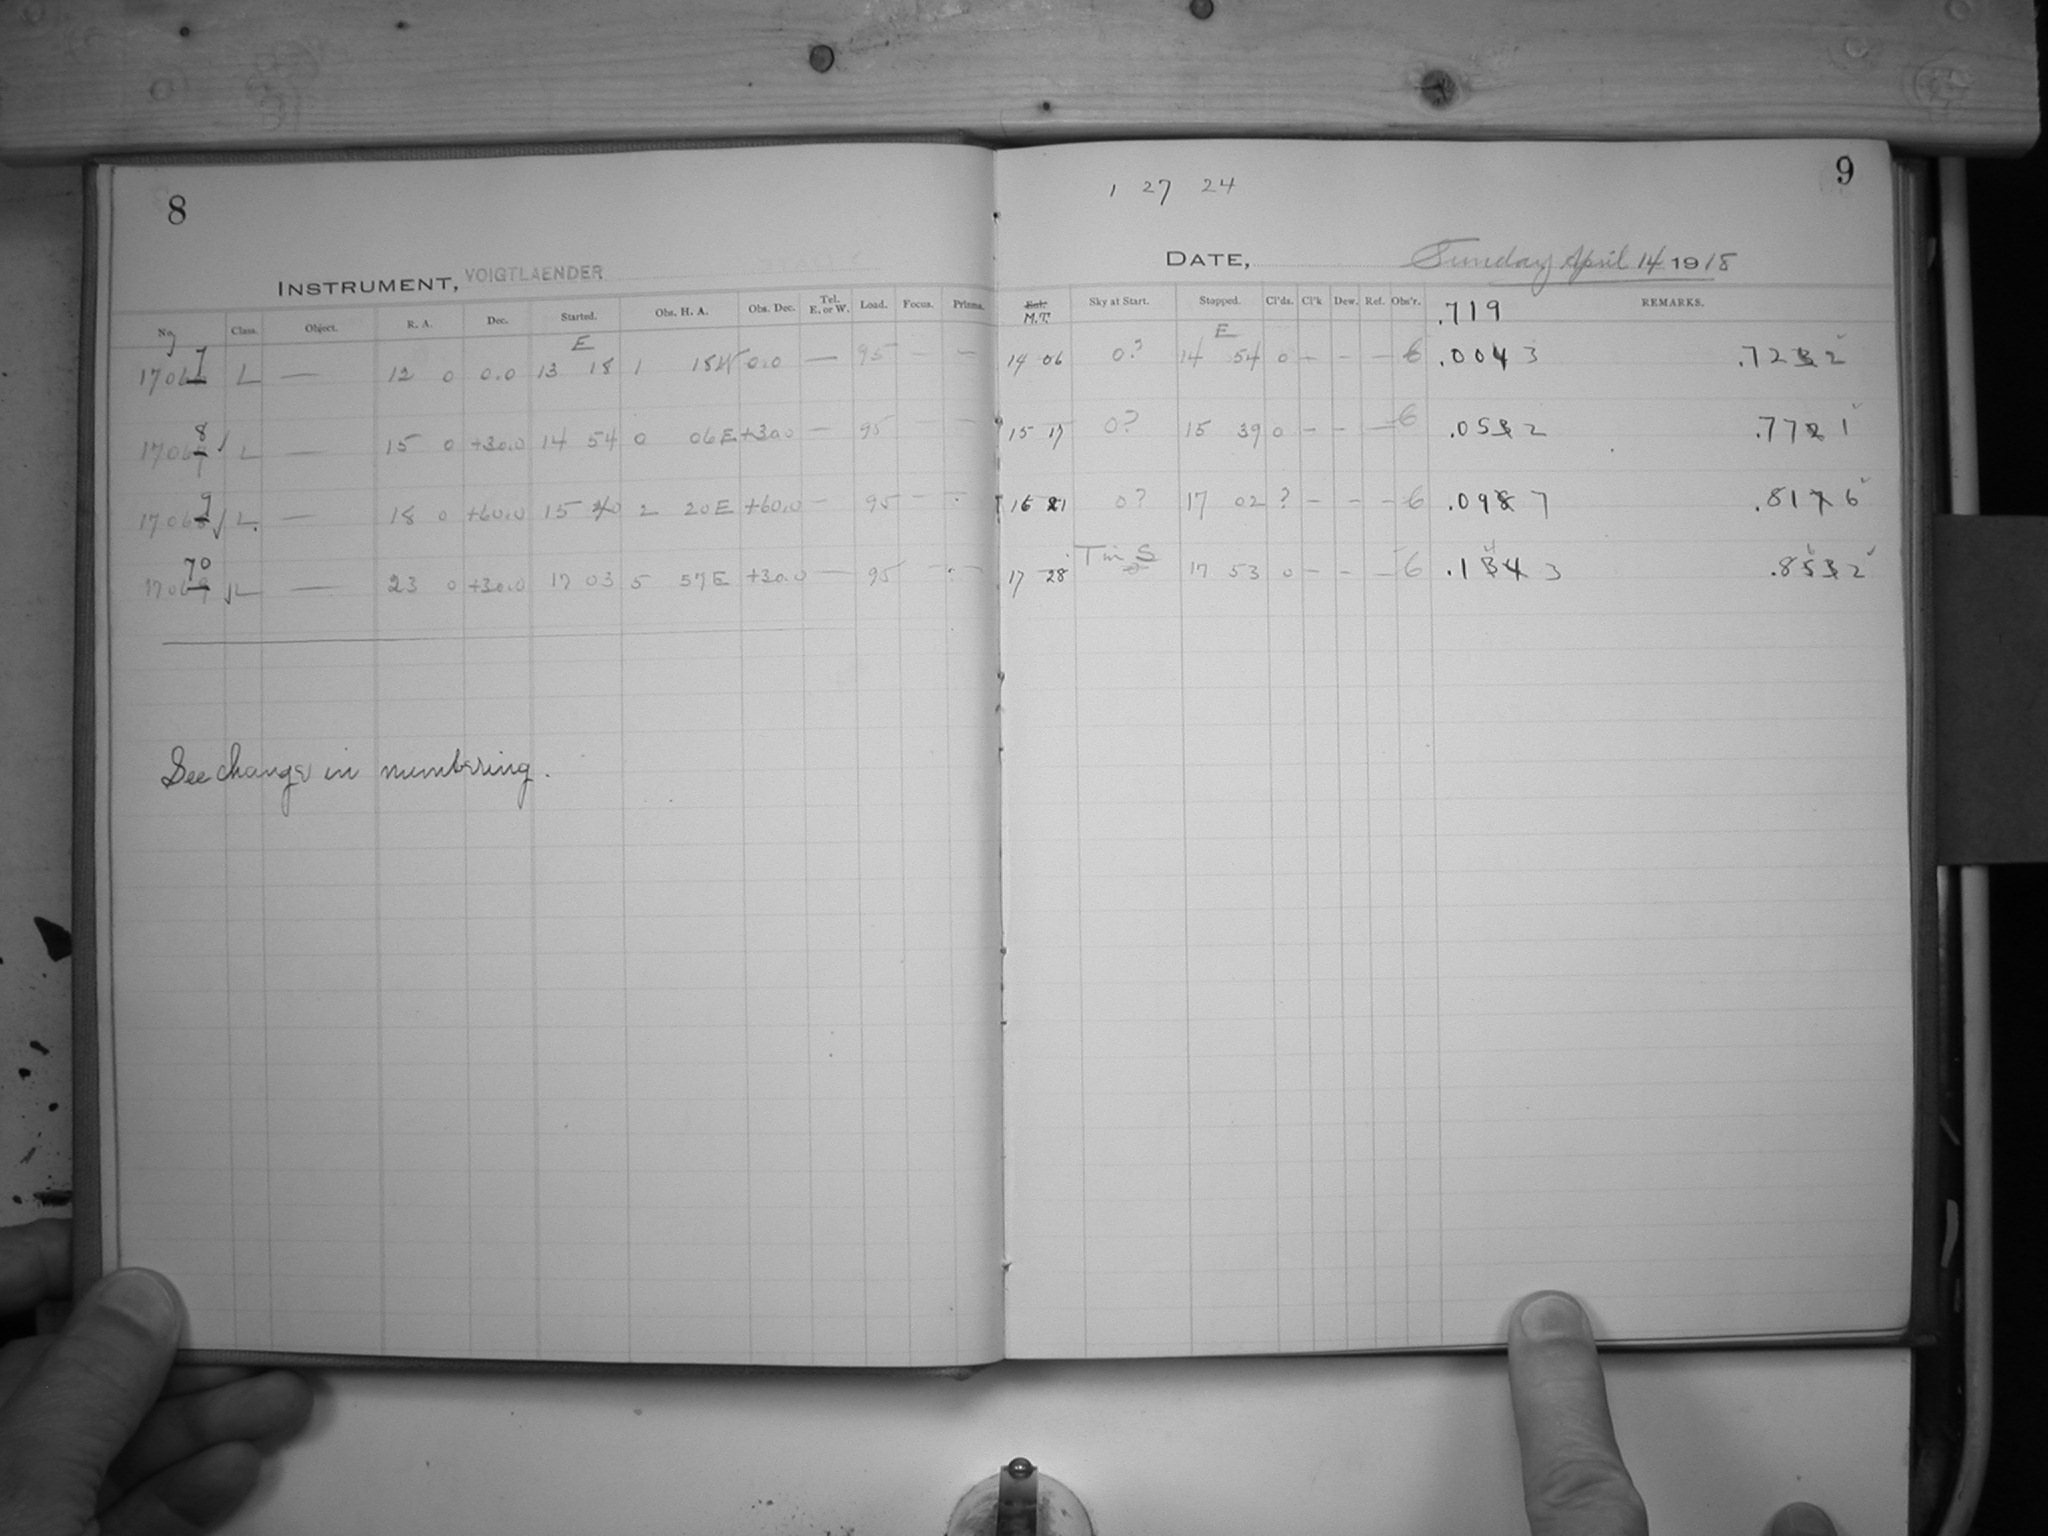 8
INSTRUMENT, VOIGTLAENDER
No. Class. Object. R. A. Dec. Started. Obs. H. A. Obs. Dec. Tel. E. or W. Load. Focus. Prisms.
E
7
L — 12 0 0.0 13 18 1 18W 0.0 — 95 — —
8
17067 √ L — 15 0 +30.0 14 54 0 06E +30.0 — 95 — —
9
17068 √ L. — 18 0 +60.0 15 40 2 20E +60.0 — 95 — —
70
17069 √ L — 23 0 +30.0 17 03 5 57E +30.0 — 95 — —
See change in numbering.
9
1 27 24
DATE, Sunday April 14 1918
Ent. M.T. Sky at Start. Stopped. Cl'ds. Cl'k Dew. Ref. Obs'r. .719 REMARKS.
E
14 06 0? 14 54 0 — — — 6 .0043 .7232
15 17 0? 15 39 0 — — — 6 .0532 .7721
16 21 0? 17 02 ? — — — 6 .0987 .8176
17 28 T in S 17 53 0 — — — 6 .1343 .8532